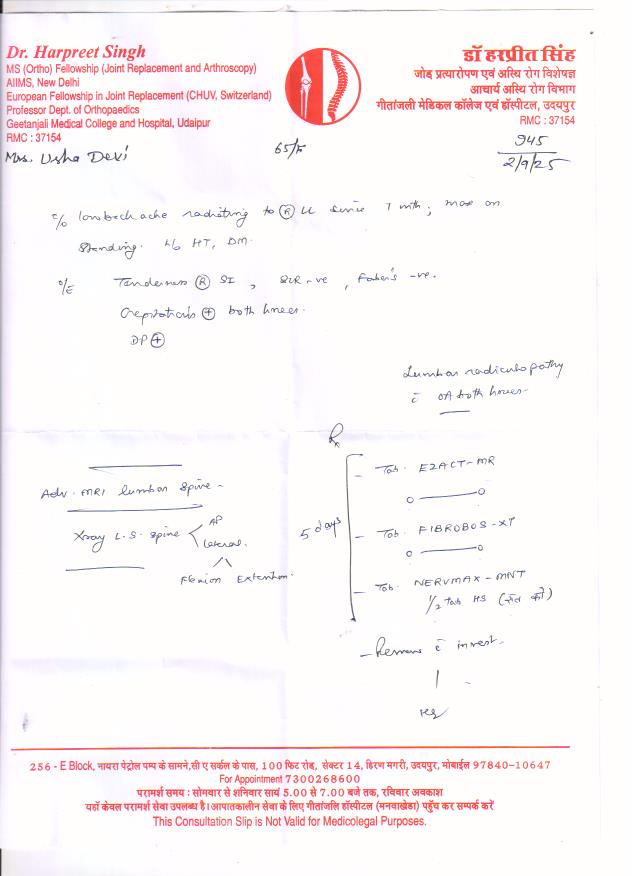 Dr. Harpreet Singh
MS (Ortho) Fellowship (Joint Replacement and Arthroscopy)
AIIMS, New Delhi
European Fellowship in Joint Replacement (CHUV, Switzerland)
Professor Dept. of Orthopaedics
Geetanjali Medical College and Hospital, Udaipur
RMC : 37154
डॉ हरप्रीत सिंह
जोड़ प्रत्यारोपण एवं अस्थि रोग विशेषज्ञ
आचार्य अस्थि रोग विभाग
गीतांजली मेडिकल कॉलेज एवं हॉस्पीटल, उदयपुर
RMC : 37154
Mrs. Usha Devi
65/F
945
2/9/25
c/o low backache radiating to R LL since 1 mth; more on
standing. h/o HT, DM.
o/E Tenderness R SI, SLR -ve, Faber's -ve.
Crepitations + both knees.
DP +
Lumbar radiculopathy
c̄ OA both knees
Adv. MRI lumbar spine
Xray L.S. spine AP
lateral.
Flexion Extention.
Rx
5 days
- Tab. EZACT-MR
0 — 0
- Tab. FIBROBOS-XT
0 — 0
- Tab. NERVMAX-MNT
1/2 Tab HS (रात को)
- Review c̄ invest.
256 - E Block, नायरा पेट्रोल पम्प के सामने, सी ए सर्कल के पास, 100 फिट रोड, सेक्टर 14, हिरण मगरी, उदयपुर, मोबाईल 97840-10647
For Appointment 7300268600
परामर्श समय : सोमवार से शनिवार सायं 5.00 से 7.00 बजे तक, रविवार अवकाश
यहाँ केवल परामर्श सेवा उपलब्ध है। आपातकालीन सेवा के लिए गीतांजलि हॉस्पीटल (मनवाखेडा) पहुँच कर सम्पर्क करें
This Consultation Slip is Not Valid for Medicolegal Purposes.